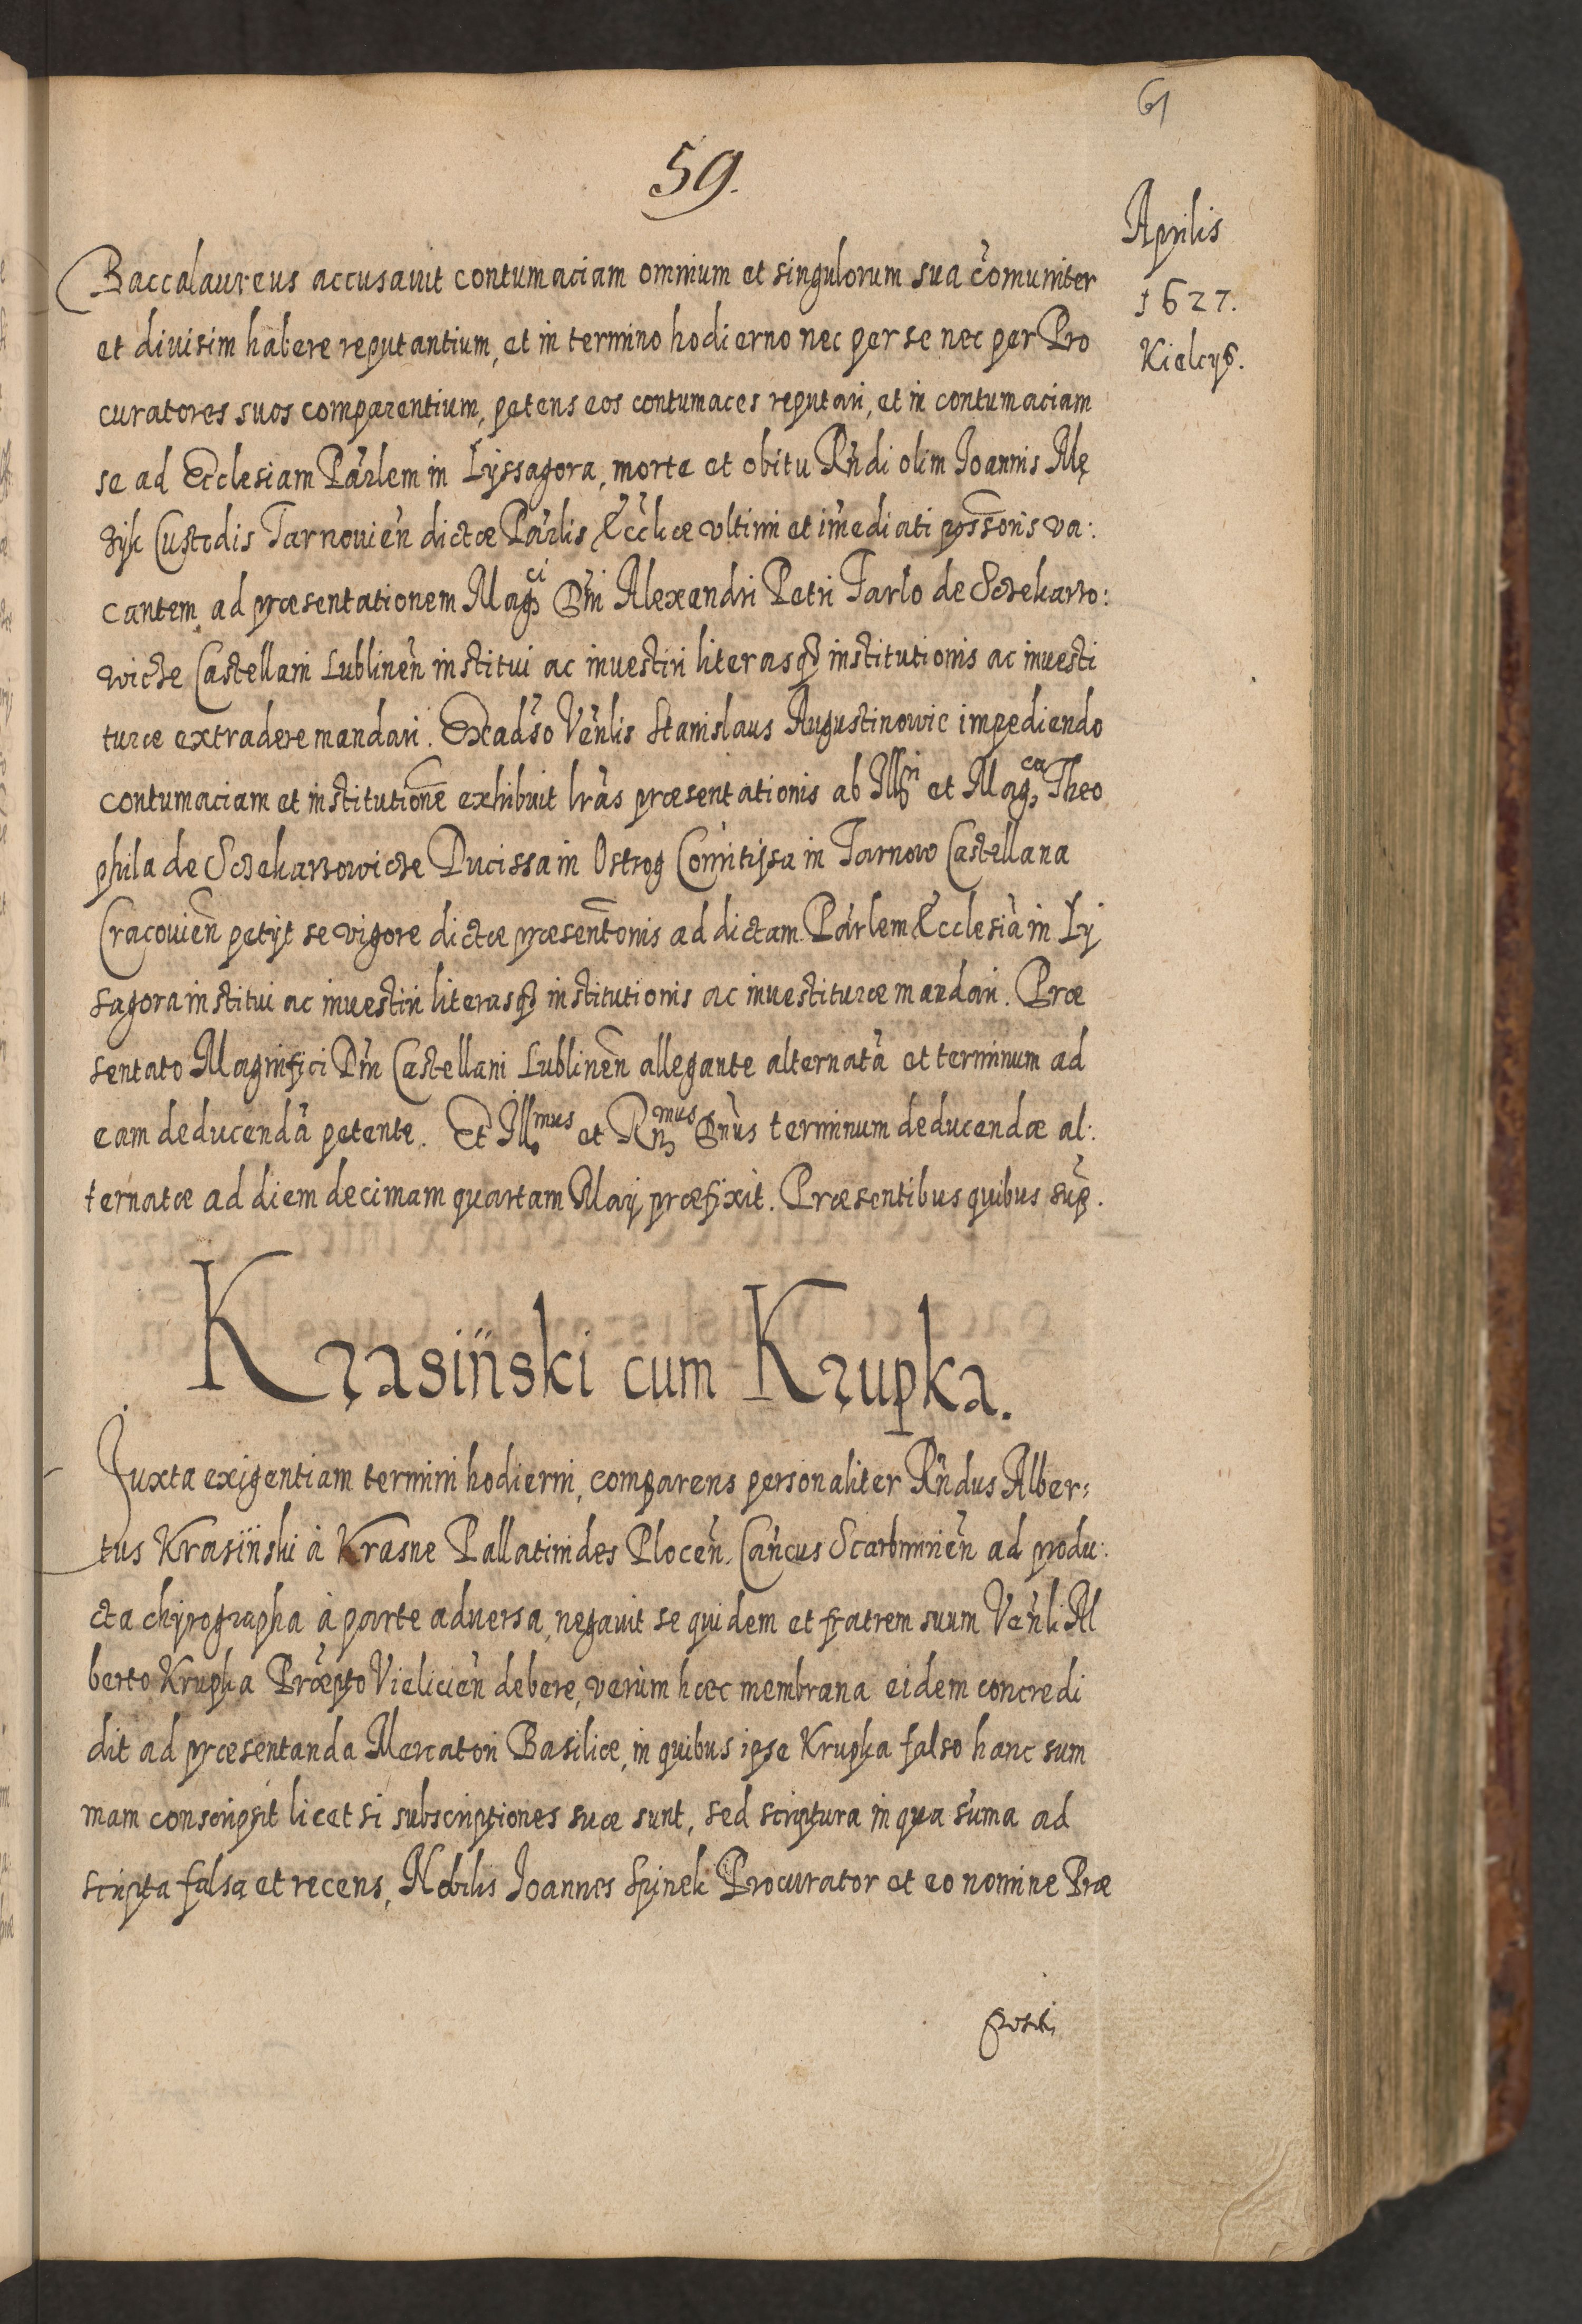 61
59.
Aprilis
1627.
Kielcys.
Baccalaureus accusavit contumaciam omnium et singulorum sua cõmuniter
et divisim habere reputantium, et in termino hodierno nec per se nec per Pro
curatores suos comparentium, petens eos contumaces reputari, et in contumaciam
se ad Ecclesiam Pãrlem in Lyssagora, morte et obitu Rñdi olim Joannis Mę
żyk Custodis Tarnovieñ dictæ Pãrlis Ecc̃liæ ultimi et im̃ediati pssoris va:
cantem, ad præsentationem Magci Dñi Alexandri Petri Tarlo de Sczekarzo:
wicze Castellani Lublineñ institui ac investiri literasq3 institutionis ac investi
turæ extradere mandari. Exadṽso Veñlis Stanislaus Augustinowic impediendo
contumaciam et institutionẽ exhibuit lrãs præsentationis ab Illri et Magca Theo
phila de Sczekarzowicze Ducissa in Ostrog Comitissa in Tarnow Castellana
Cracovieñ petyt se vigore dictæ præsentõnis ad dictam Pãrlem Ecclesiã in Ly
sagora institui ac investiri literasq3 institutionis ac investituræ mandari. Præ
sentato Magnifici Dñi Castellani Lublineñ allegante alternatã et terminum ad
eam deducendã petente. Et Illmus et Rnmus Dñus terminum deducendæ al:
ternatæ ad diem decimam quartam Maij præfixit. Præsentibus quibus sup̃.
Krasiński cum Krupka.
Juxta exigentiam termini hodierni, comparens personaliter Rñdus Alber:
tus Krasiński à Krasne Pallatinides Ploceñ, Cañcus Scarbimirieñ ad produ:
cta chyrographa à parte adversa, negavit se quidem et fratrem suum Veñli Al
berto Krupka Præpto Vielicieñ debere, verùm hæc membrana eidem concredi
dit ad præsentanda Mercatori Basiliæ, in quibus ipse Krupka falso hanc sum
mam conscripsit licet si subscriptiones suæ sunt, sed scriptura in qua sum̃a ad
scripta falsa et recens, Nobilis Joannes Spinek Procurator et eo nomine Præ